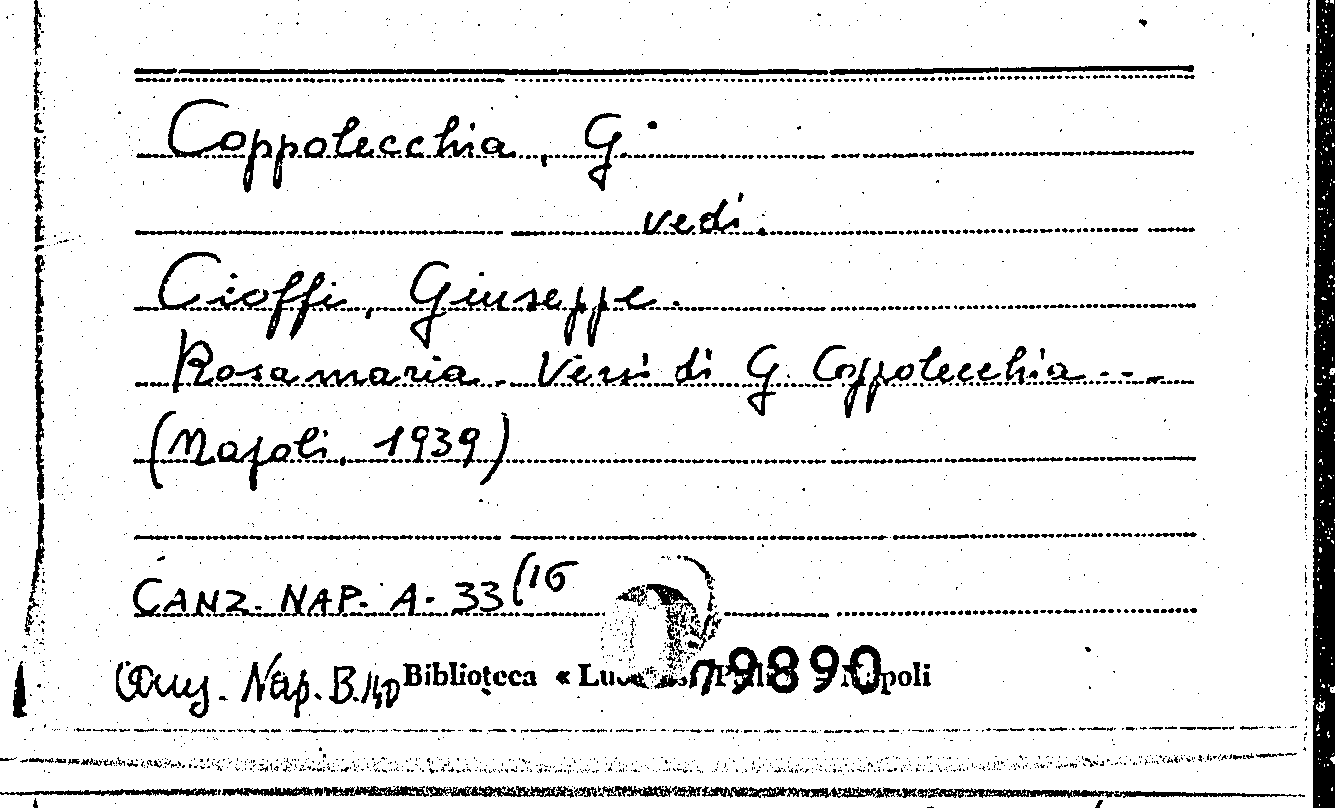 Coppolecchia, G.
vedi.
Cioffi, Giuseppe.
Rosamaria. Versi di G. Coppolecchia ...
(Napoli, 1939)
CANZ. NAP. A. 33(16
Canz. Nap. B.140
Biblioteca « 79890 Napoli